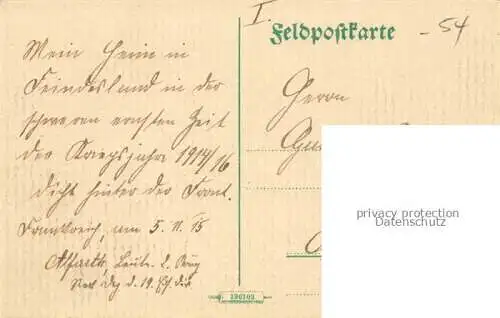 I.
Feldpostkarte
- 54
Mein Heim in
Feindesland in der
schweren ernsten Zeit
der Kriegsjahre 1914/16
dicht hinter der Front.
Frankreich, am 5. II. 15
Leutn. d. 
d. 19.
Herrn
privacy protection
Datenschutz
196102